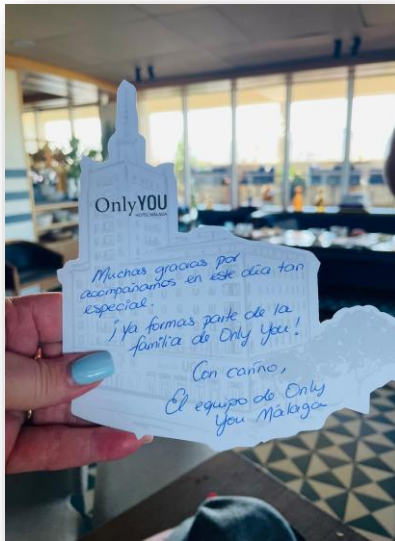 OnlyYOU
HOTEL MÁLAGA
Muchas gracias por
acompañarnos en este día tan
especial.
¡Ya formas parte de la
familia de Only You!
Con cariño,
El equipo de Only
You Málaga